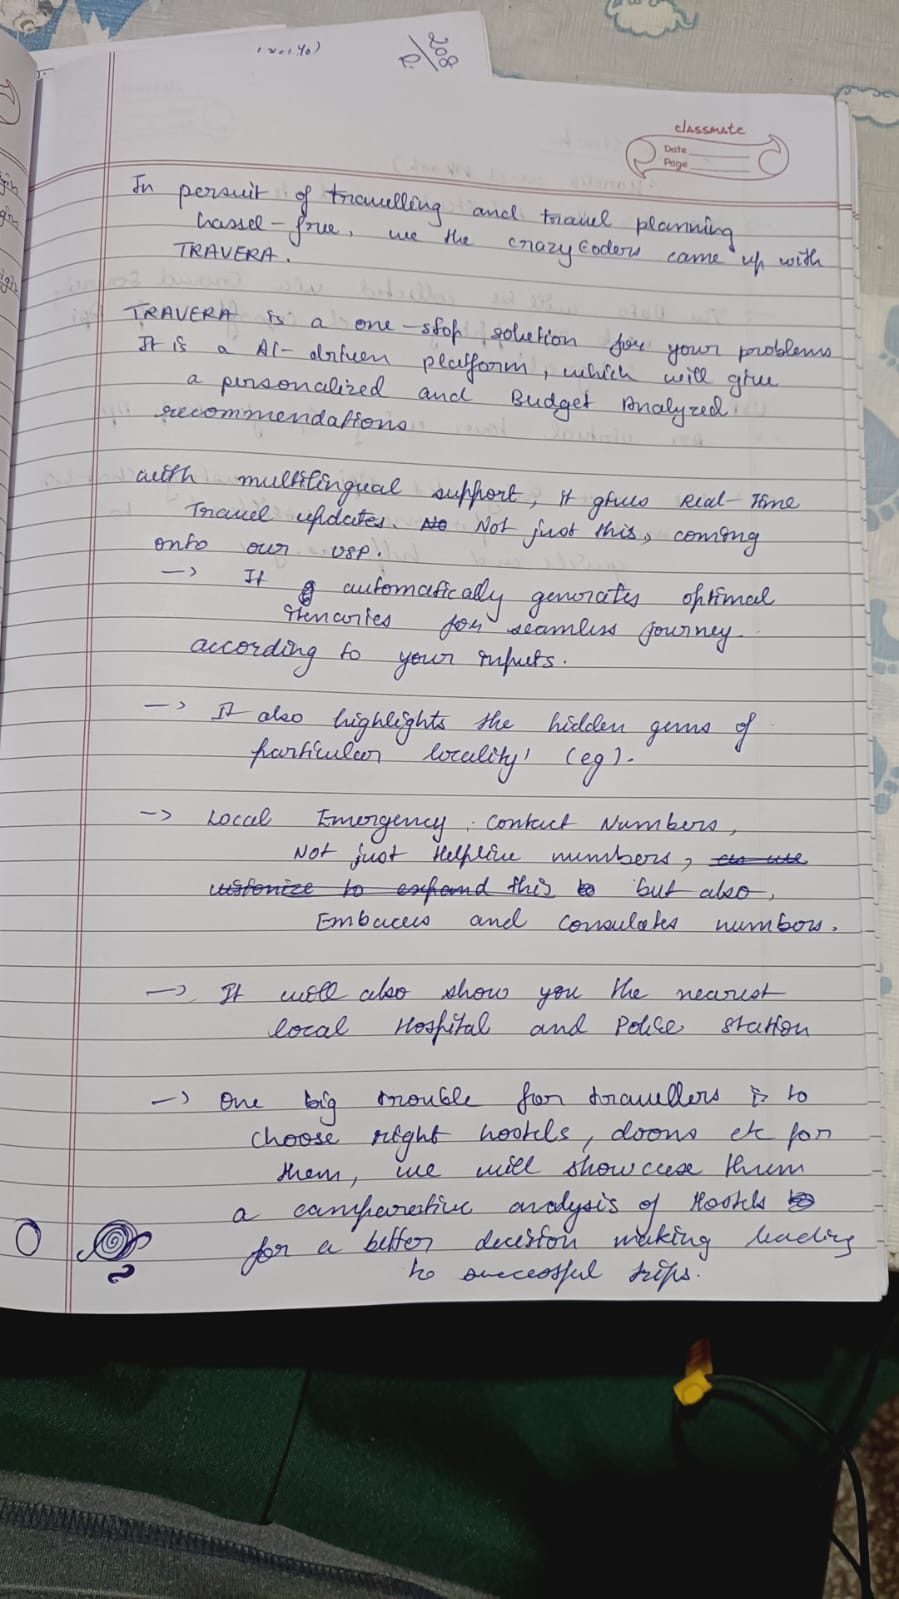 208
classmate
Date
Page
In persuit of travelling and travel planning
hassel-free, we the crazycoders came up with
TRAVERA.
TRAVERA is a one-stop solution for your problems
It is a AI-driven platform, which will give
a personalized and Budget Analyzed
recommendations
with multilingual support, it gives Real-Time
Travel updates. No Not just this, coming
onto our USP.
-> It automatically generates optimal
itenaries for seamless journey
according to your inputs.
-> It also highlights the hidden gems of
particular locality' (eg).
-> Local Emergency Contact Numbers,
Not just Helpline numbers,
to expand this to but also,
Embacies and Consulates numbers.
-> It will also show you the nearest
local Hospital and Police station
-> One big trouble for travellers is to
choose right hostels, dorms etc for
them, we will showcase them
a comparative analysis of Hostels
for a better decision making leading
to successful trips.